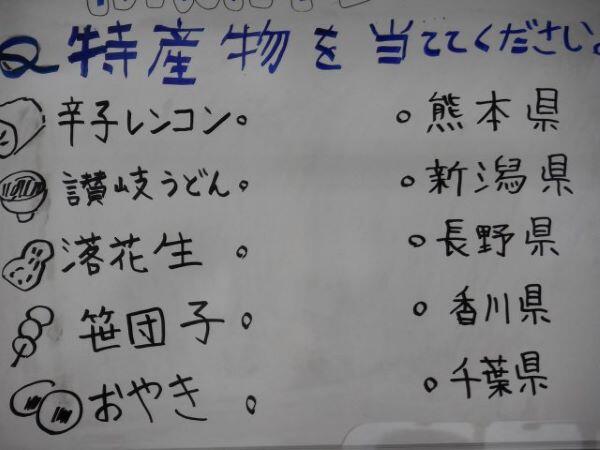 Q特産物を当ててください。
辛子レンコン
熊本県
讃岐うどん
新潟県
落花生
長野県
笹団子
香川県
おやき
千葉県